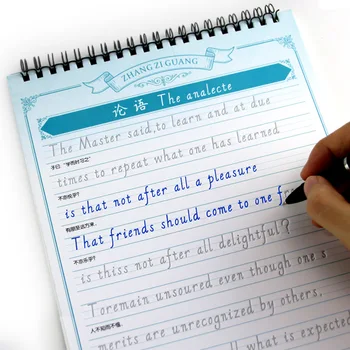 ZHANGZIGUANG
论语 The analecte
The Master said,to learn and at due
子曰:"学而时习之
times to repeat what one has learned
不亦悦乎?
is that not after all a pleasure
有朋自远方来,
That friends should come to one f
不亦乐乎?
is thiss not after all delightful?
Toremain unsoured even though one s
人不知而不愠,
merits are unrecognized by others,
all what is expected